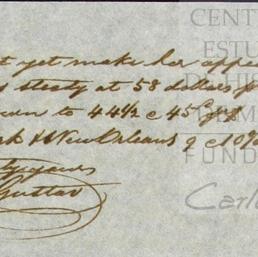 t yet make her appe
steady at 58 dollars p
to 44½ c 45
k & New Orleans 9 c 10%
Gustav
CENT
ESTU
DE HIS
FUND
Carl